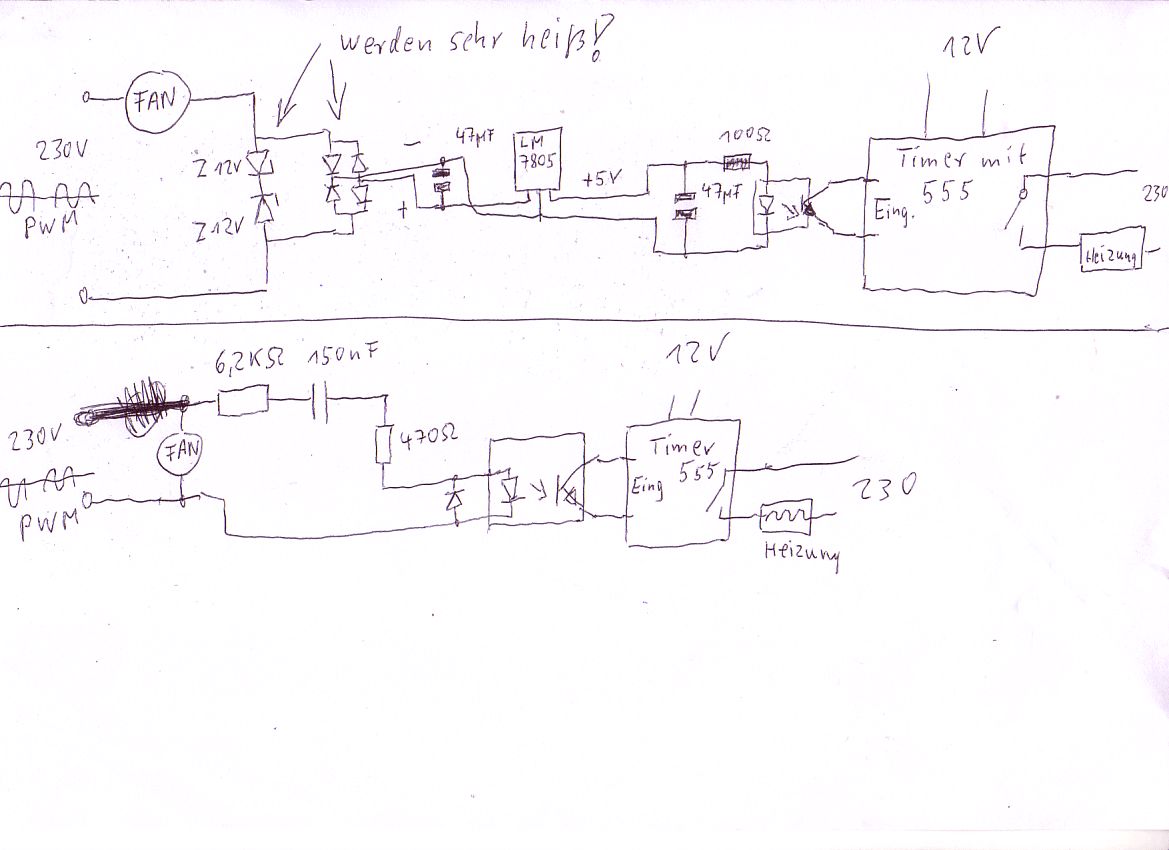 werden sehr heiß!
12V
FAN
230V
PWM
Z 12V
Z 12V
-
+
47µF
LM
7805
+5V
100Ω
47µF
Timer mit
555
Eing.
230
Heizung
6,2KΩ 150nF
12V
230V
FAN
PWM
470Ω
Timer
555
Eing
230
Heizung